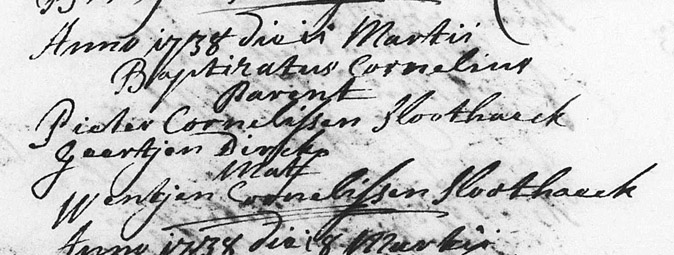 Anno 1738 die 11 Martii
Baptizatus Cornelius
Parent
Pieter Cornelissen Sloothaeck
Geertjen Dircks
Matt
Wentjen Cornelissen Sloothaeck
Anno 1738 die 18 Martii